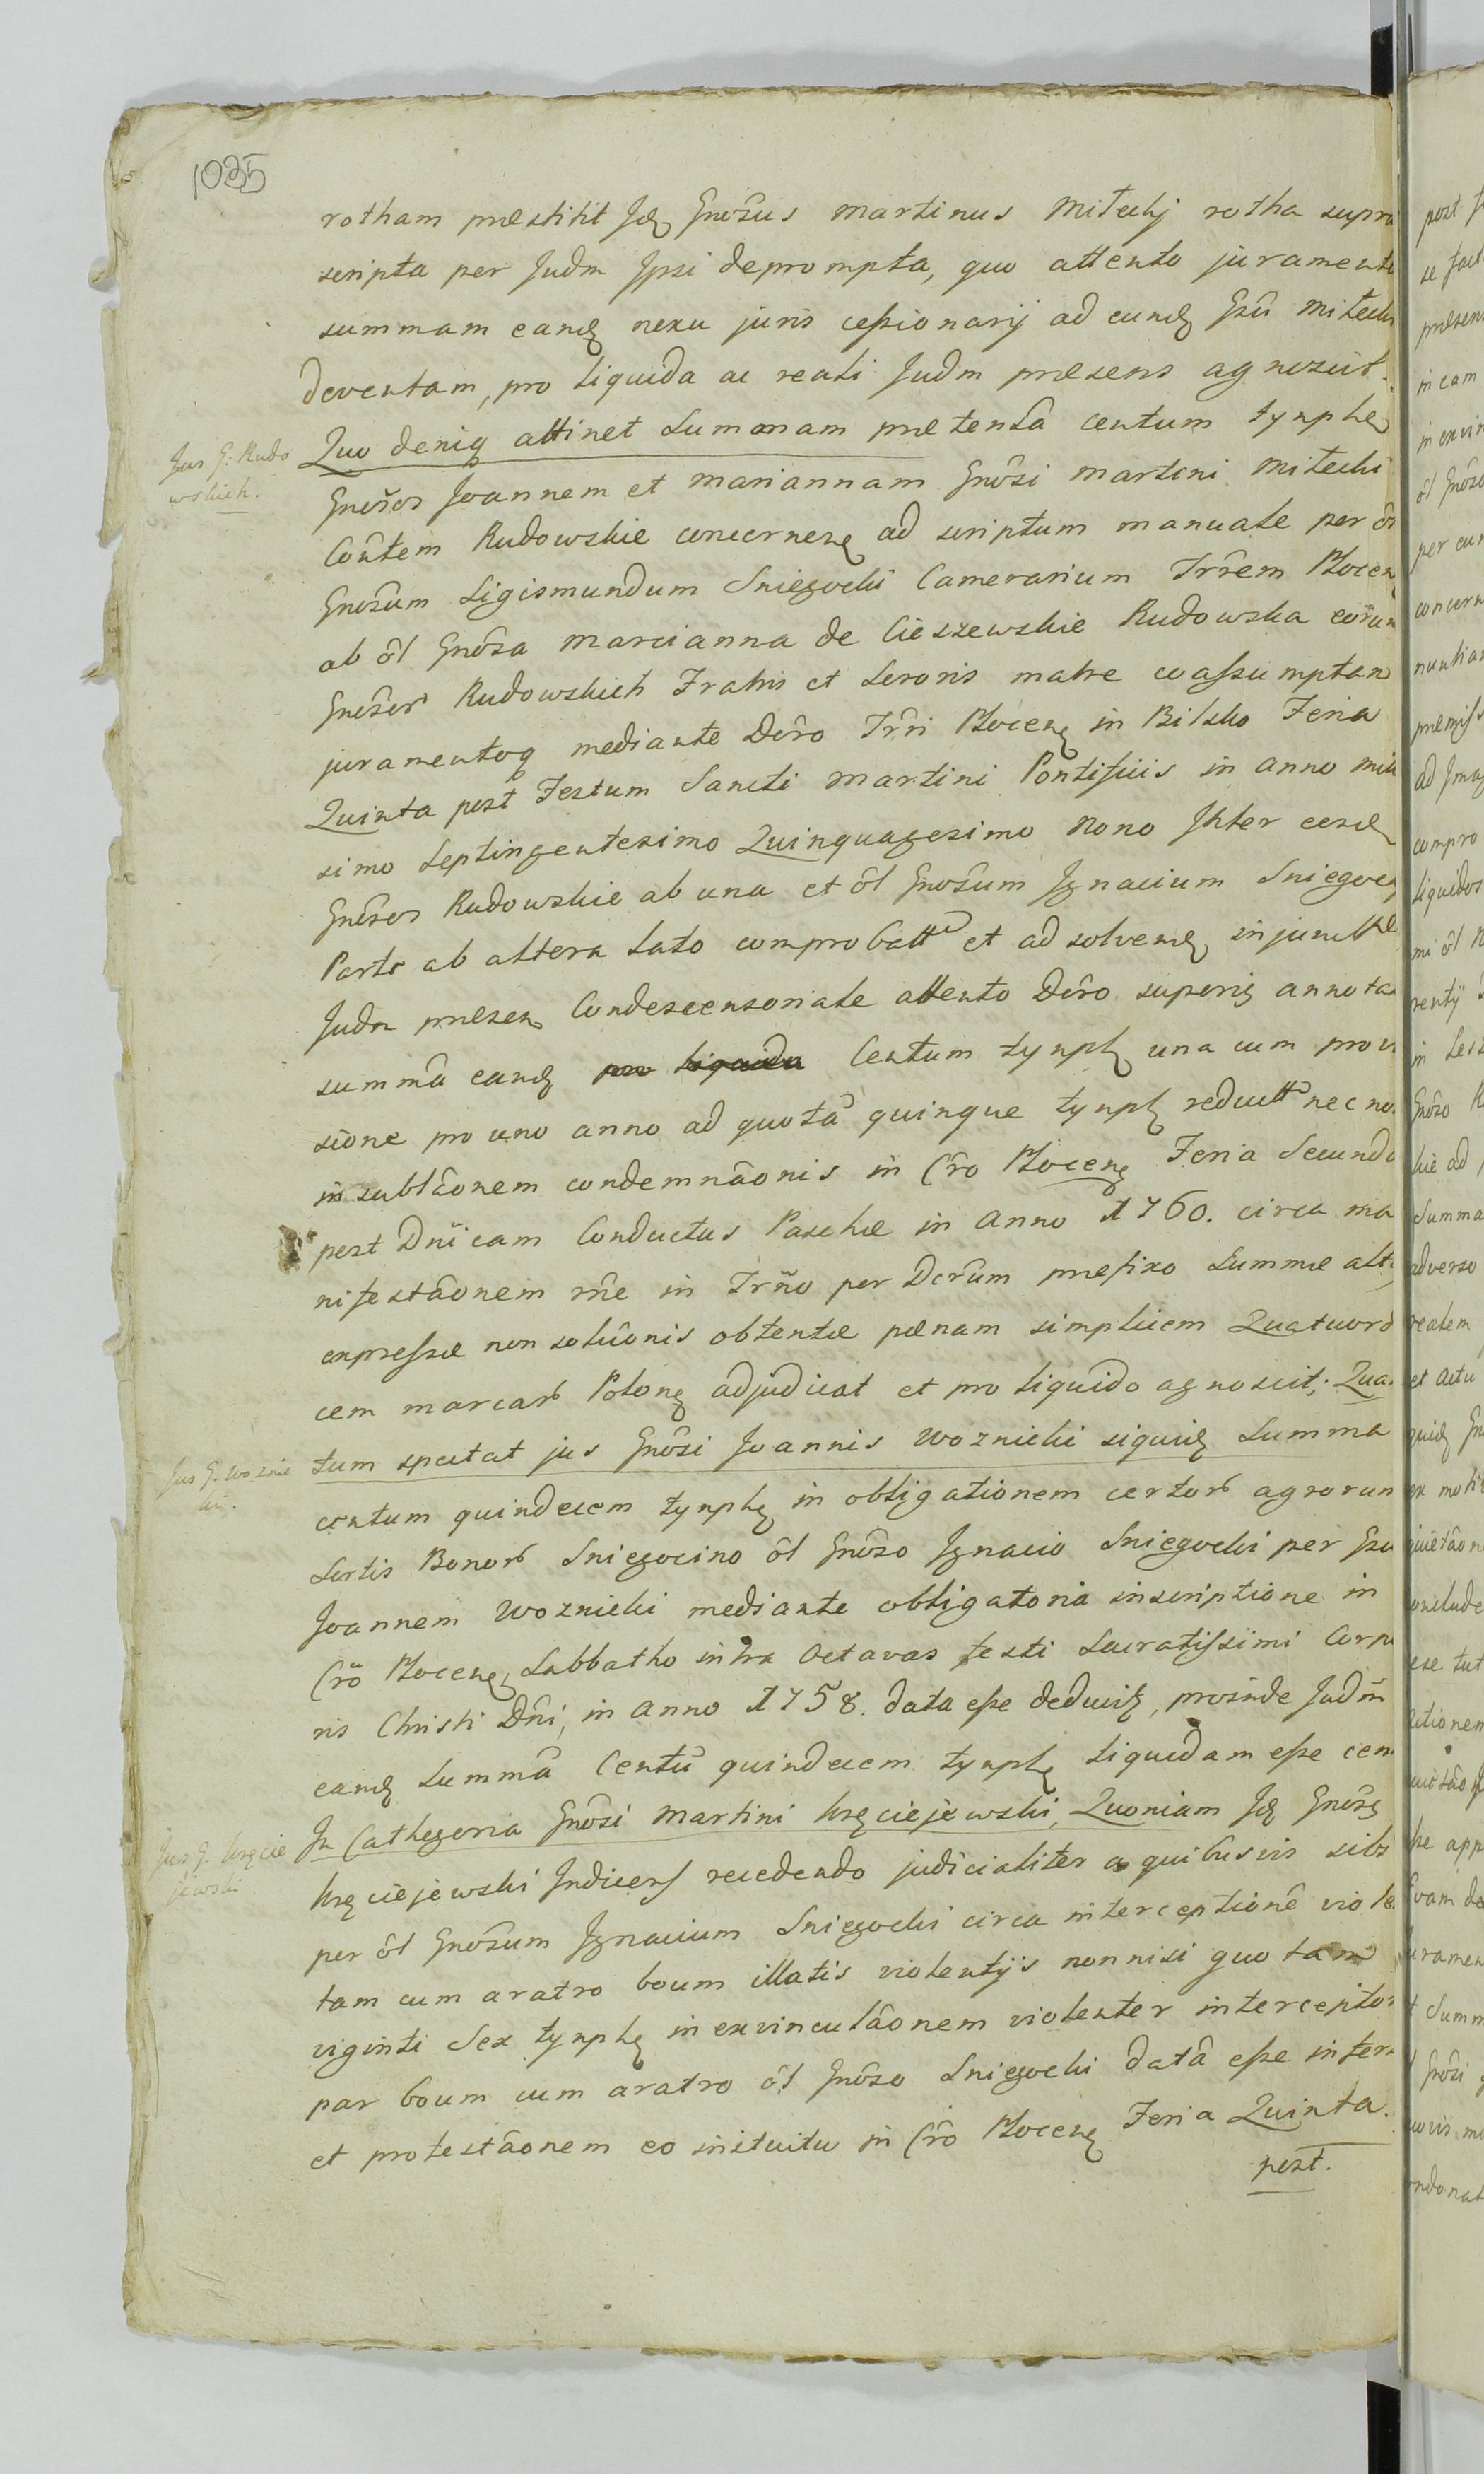 1035
rotham præstitit Jdę Gnosus Martinus Mitecky rotha supra
scripta per Judm Jpsi deprompta, quo attento juramento
summam eandę nexu juris cessionarij ad eundę Gsũ Mitecki
deventam, pro liquida ac reali Judm præsens agnoscit.
Jus G: Rudo
wskich.
Quo deniq attinet Summam prætensã centum tynphę
Gnosos Joannem et Mariannam Gnosi Martini Mitecki
Coñtem Rudowskie concernenę ad scriptum manuale per ol
Gnosum Sigismundum Sniegocki Camerarium Trrem Plocen
ab ol Gnosa Marcianna de Cieszewskie Rudowska eorun
Gnosor Rudowskich Fratris et Sororis matre coassumptam
juramentoq mediante Dcro Trri Plocenę in Bilsko Feria
Quinta post Festum Sancti Martini Pontificis in anno mill
simo Septingentesimo Quinquagesimo Nono Jnter eosdę
Gnosos Rudowskie ab una et ol Gnosum Jgnacium Sniegocki
Parte ab altera lato comprobatt et ad solvendę injunctæ
Judm præsen Condescensoriale attento Dcro superiꝗ annota
summã eandę pro liquida Centum tynphę una cum provi
sione pro uno anno ad quotã quinque tynphę reductt nec no
in sublãonem condemnãonis in Cro Plocenę Feria Secunda
post Dnicam Conductus Paschæ in anno 1760. circa ma
nifestãonem rñe in Trño per Dcrum præfixo Summæ alte
expressæ non soluõnis obtentæ pænam simplicem Quatuord
cem marcar Polonę adjudicat et pro liquido agnoscit, Quan
Jus G. Woznic
ki.
tum spectat jus Gnosi Joannis Woznicki siquidę Summa
centum quindecem tynphę in obligationem certor agrorum
Sortis Bonor Sniegocino ol Gnoso Jgnacio Sniegocki per Gsu
Joannem Woznicki mediante obligatoria inscriptione in
Cro Plocenę, Sabbatho intra Octavas festi Sacratissimi Corpo
ris Christi Dni, in anno 1758. data esse deducitę, proinde Judm
eandę Summã Centũ quindecem tynphę liquidam esse cen
Jus G. Kręcie
jewski
Jn Cathegoria Gnosi Martini Kręciejewski, Quoniam Jdę Gnosę
Kręciejewski Judicens recedendo judicialiter a quibusvis sibi
per ol Gnosum Jgnacium Sniegocki circa interceptionẽ viole
tam cum aratro boum illatis violentijs nonnisi quotam
viginti Sex tynphę in exvinculãonem violenter interceptor
par boum cum aratro ol Gnoso Sniegocki datã esse infert
et protestãonem eo inituitu in Cro Plocenę Feria Quinta.
post.